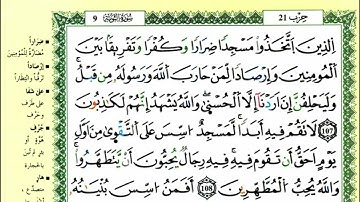 حزب 21
سورة التوبة
9
الذين اتخذوا مسجدا ضرارا وكفرا وتفريقا بين
المومنين وإرصادا لمن حارب الله ورسوله من قبل
وليحلفن إن اردنا إلا الحسنى والله يشهد إنهم لكاذبون
107 لا تقم فيه أبدا لمسجد اسس على التقوى من اول
يوم احق أن تقوم فيه فيه رجال يحبون أن يتطهروا
والله يحب المطهرين 108 أفمن اسس بنيانه
ضرارا
مضارة للمؤمنين
إرصادا
ترقبا وانتظارا
على شفا
على حرف
جرف
هار